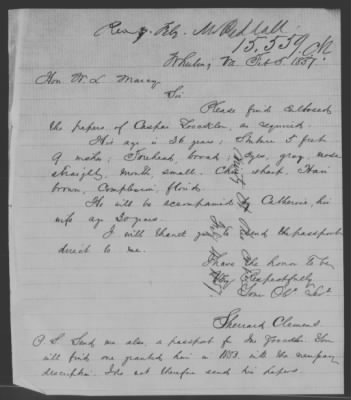 15.559
Wheeling Va Feb 5. 1857.
Hon W. L. Marcy.
Sir
Please find enclosed
the papers of Caspar as required.
His age is 36 years; Stature 5 feet
9 inches; Forehead, broad; eyes, gray, nose
straight, mouth, small. Chin sharp. Hair
brown, Complexion, florid.
He will be accompanied by Catherine, his
wife age 30 years.
I will thank you to send the passport
direct to me.
I have the honor to be
Very Respectfully
Your Obt Svt.
Sherrard Clemens
P. S. Send me also, a passport for You
will find one granted him in 1853. with the necessary
description. I do not therefore send his papers.